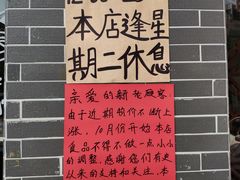 本店逢星
期二休息
亲爱的新老顾客:
由于近期物价不断上
涨,10月份开始本店
食品不得不做一点小小
的调整,感谢您们有史
以来的支持和关注,本